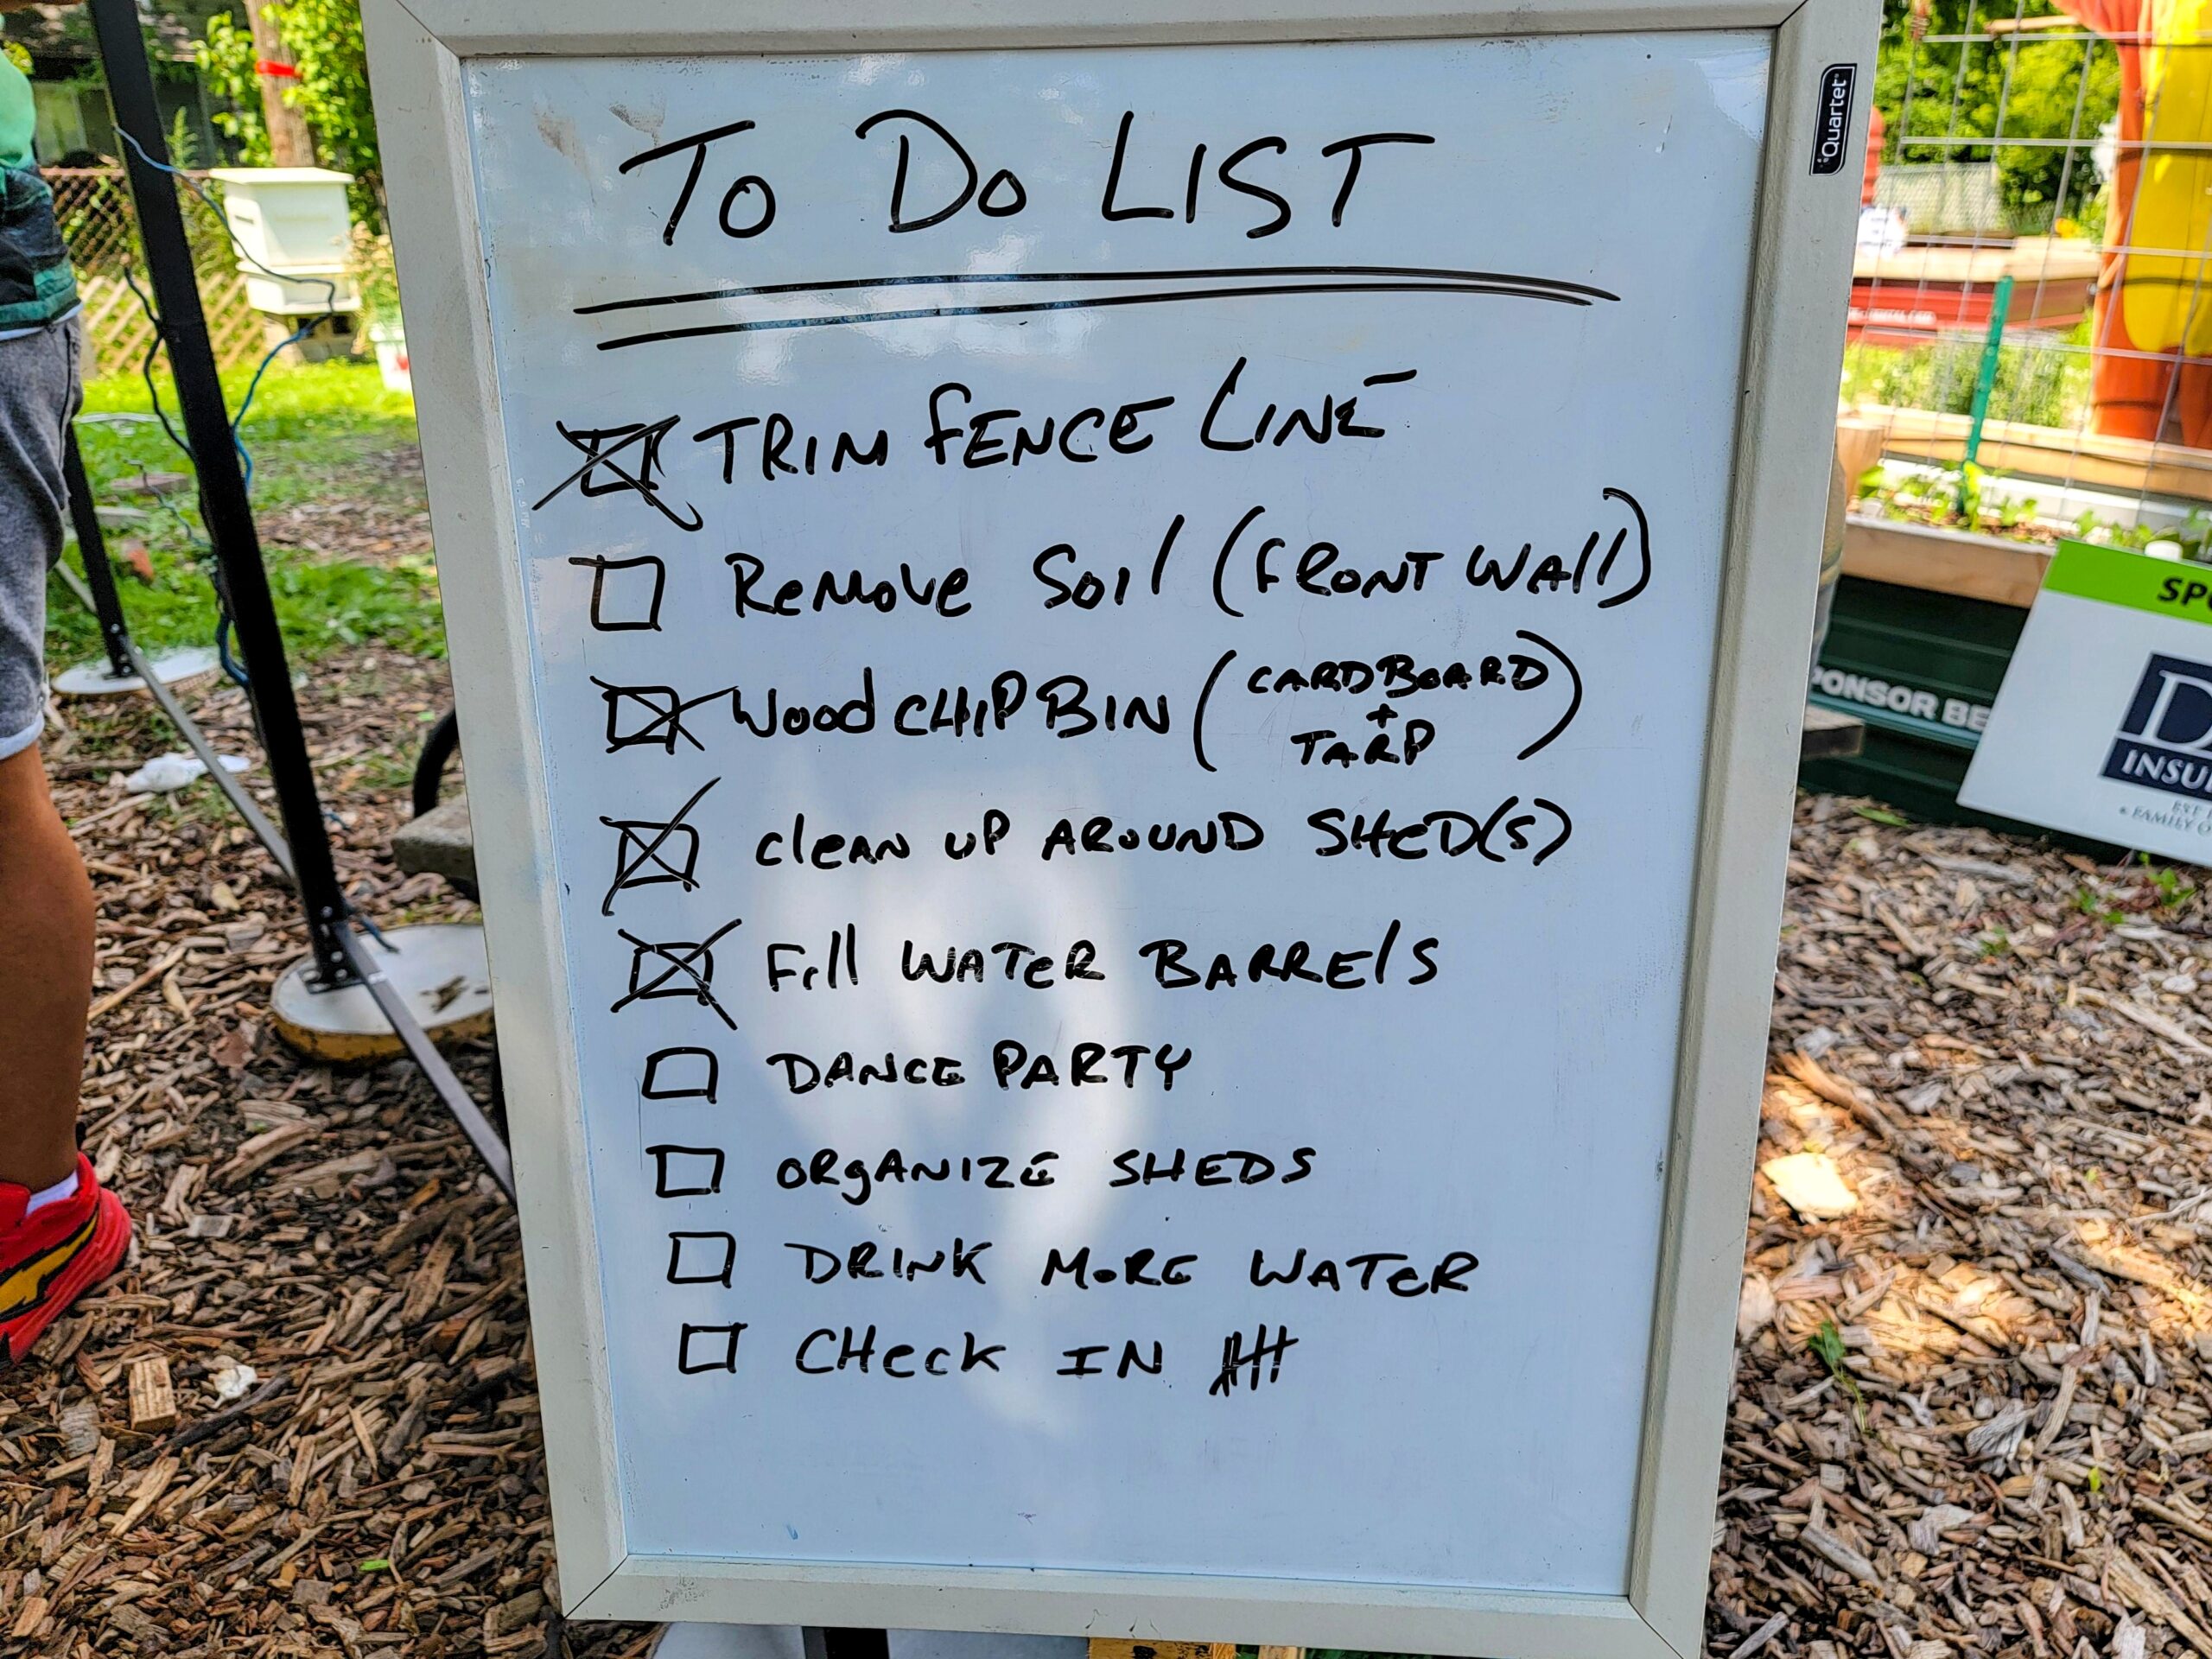 To Do LIST
TRIM FENCE LINE
Remove Soil (FRONT WAll)
Wood CHIP BIN (CARDBOARD
+
TARP)
cleAN UP AROUND SHeD(S)
Fill WATeR BARRElS
DANCE PARTY
ORgANIZE SHEDS
DRINK MoRE WATeR
CHecK IN
Quartet
SPONSOR BE
INSU